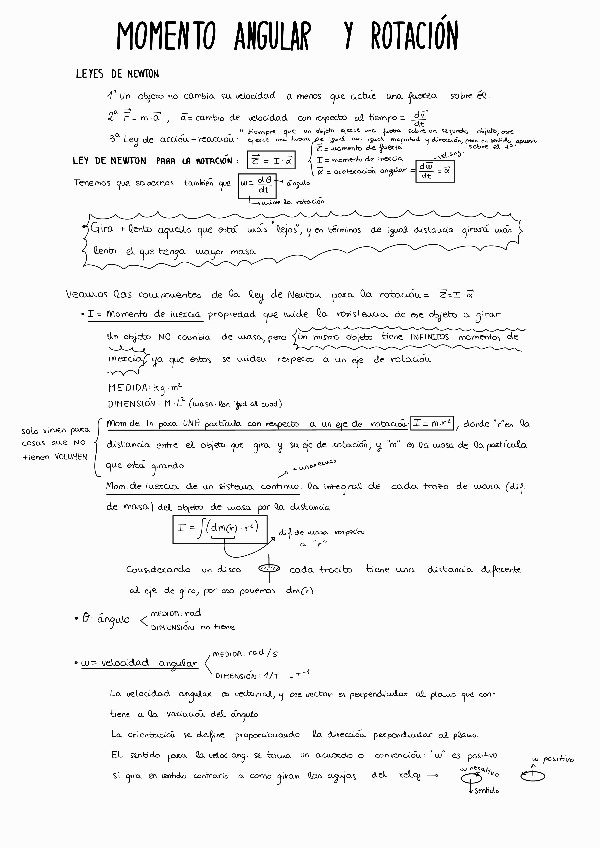 MOMENTO ANGULAR Y ROTACIÓN
LEYES DE NEWTON
1ª Un objeto no cambia su velocidad a menos que actúe una fuerza sobre él
2ª F = m·a , a = cambio de velocidad con respecto al tiempo = dv/dt
3ª Ley de acción-reacción: "siempre que un objeto ejerce una fuerza sobre un segundo objeto, este
ejerce una fuerza de igual magnitud y dirección, pero en sentido opuesto
sobre el 1º"
LEY DE NEWTON PARA LA ROTACIÓN: τ = I·α
τ = momento de fuerza
I = momento de inercia
α = aceleración angular = dw/dt = α
vel. ang.
Tenemos que sabernos también que w = dθ/dt → ángulo
→ mide la rotación
Gira + lento aquello que está más "lejos", y en términos de igual distancia girará más
lento el que tenga mayor masa
Veamos las componentes de la ley de Newton para la rotación = τ = I α
• I = Momento de inercia propiedad que mide la resistencia de ese objeto a girar
Un objeto NO cambia de masa, pero un mismo objeto tiene INFINITOS momentos de
inercia, ya que estos se miden respecto a un eje de rotación
MEDIDA: kg·m²
DIMENSIÓN: M·L² (masa·longitud al cuad)
solo sirven para
cosas que NO
tienen VOLUMEN
Mom de In para UNA partícula con respecto a un eje de rotación: I = m·r², donde "r" es la
distancia entre el objeto que gira y su eje de rotación, y "m" es la masa de la partícula
que está girando
Mom de inercia de un sistema continuo: la integral de cada trozo de masa (dif.
de masa) del objeto de masa por la distancia
I = ∫(dm(r)·r²)
dif. de masa respecto
a "r"
Considerando un disco cada trocito tiene una distancia diferente
al eje de giro, por eso ponemos dm(r)
• θ ángulo
MEDIDA: rad
DIMENSIÓN: no tiene
• w = velocidad angular
MEDIDA: rad/s
DIMENSIÓN: 1/T = T⁻¹
La velocidad angular es vectorial, y ese vector es perpendicular al plano que con-
tiene a la variación del ángulo
La orientación se define proporcionando la dirección perpendicular al plano.
El sentido para la veloc ang. se toma un acuerdo o convención: "w" es positivo
si gira en sentido contrario a como giran las agujas del reloj →
w negativo
sentido
w positivo